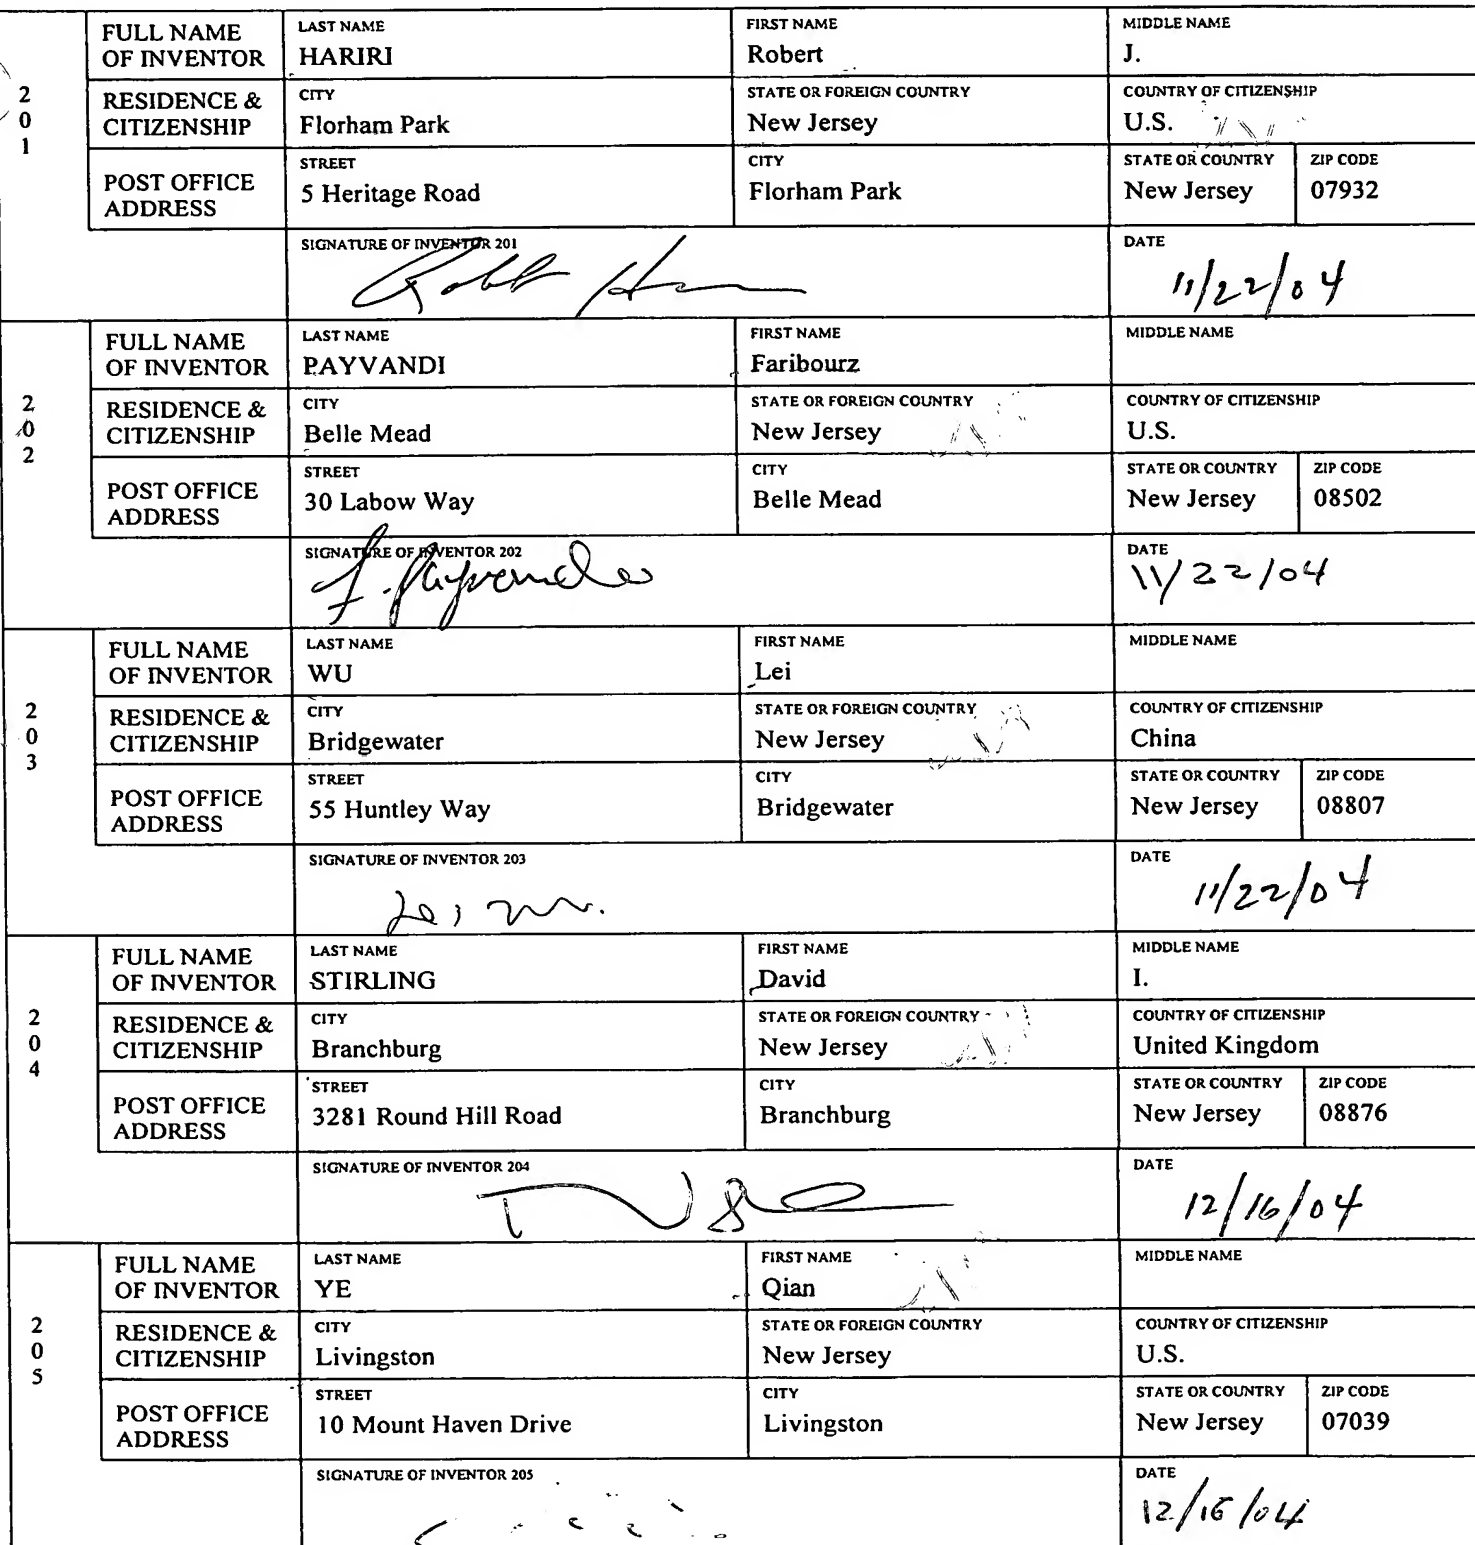 201
FULL NAME OF INVENTOR
LAST NAME
HARIRI
FIRST NAME
Robert
MIDDLE NAME
J.
RESIDENCE & CITIZENSHIP
CITY
Florham Park
STATE OR FOREIGN COUNTRY
New Jersey
COUNTRY OF CITIZENSHIP
U.S.
POST OFFICE ADDRESS
STREET
5 Heritage Road
CITY
Florham Park
STATE OR COUNTRY
New Jersey
ZIP CODE
07932
SIGNATURE OF INVENTOR 201
DATE
11/22/04
202
FULL NAME OF INVENTOR
LAST NAME
PAYVANDI
FIRST NAME
Faribourz
MIDDLE NAME
RESIDENCE & CITIZENSHIP
CITY
Belle Mead
STATE OR FOREIGN COUNTRY
New Jersey
COUNTRY OF CITIZENSHIP
U.S.
POST OFFICE ADDRESS
STREET
30 Labow Way
CITY
Belle Mead
STATE OR COUNTRY
New Jersey
ZIP CODE
08502
SIGNATURE OF INVENTOR 202
DATE
11/22/04
203
FULL NAME OF INVENTOR
LAST NAME
WU
FIRST NAME
Lei
MIDDLE NAME
RESIDENCE & CITIZENSHIP
CITY
Bridgewater
STATE OR FOREIGN COUNTRY
New Jersey
COUNTRY OF CITIZENSHIP
China
POST OFFICE ADDRESS
STREET
55 Huntley Way
CITY
Bridgewater
STATE OR COUNTRY
New Jersey
ZIP CODE
08807
SIGNATURE OF INVENTOR 203
DATE
11/22/04
204
FULL NAME OF INVENTOR
LAST NAME
STIRLING
FIRST NAME
David
MIDDLE NAME
I.
RESIDENCE & CITIZENSHIP
CITY
Branchburg
STATE OR FOREIGN COUNTRY
New Jersey
COUNTRY OF CITIZENSHIP
United Kingdom
POST OFFICE ADDRESS
STREET
3281 Round Hill Road
CITY
Branchburg
STATE OR COUNTRY
New Jersey
ZIP CODE
08876
SIGNATURE OF INVENTOR 204
DATE
12/16/04
205
FULL NAME OF INVENTOR
LAST NAME
YE
FIRST NAME
Qian
MIDDLE NAME
RESIDENCE & CITIZENSHIP
CITY
Livingston
STATE OR FOREIGN COUNTRY
New Jersey
COUNTRY OF CITIZENSHIP
U.S.
POST OFFICE ADDRESS
STREET
10 Mount Haven Drive
CITY
Livingston
STATE OR COUNTRY
New Jersey
ZIP CODE
07039
SIGNATURE OF INVENTOR 205
DATE
12/16/04